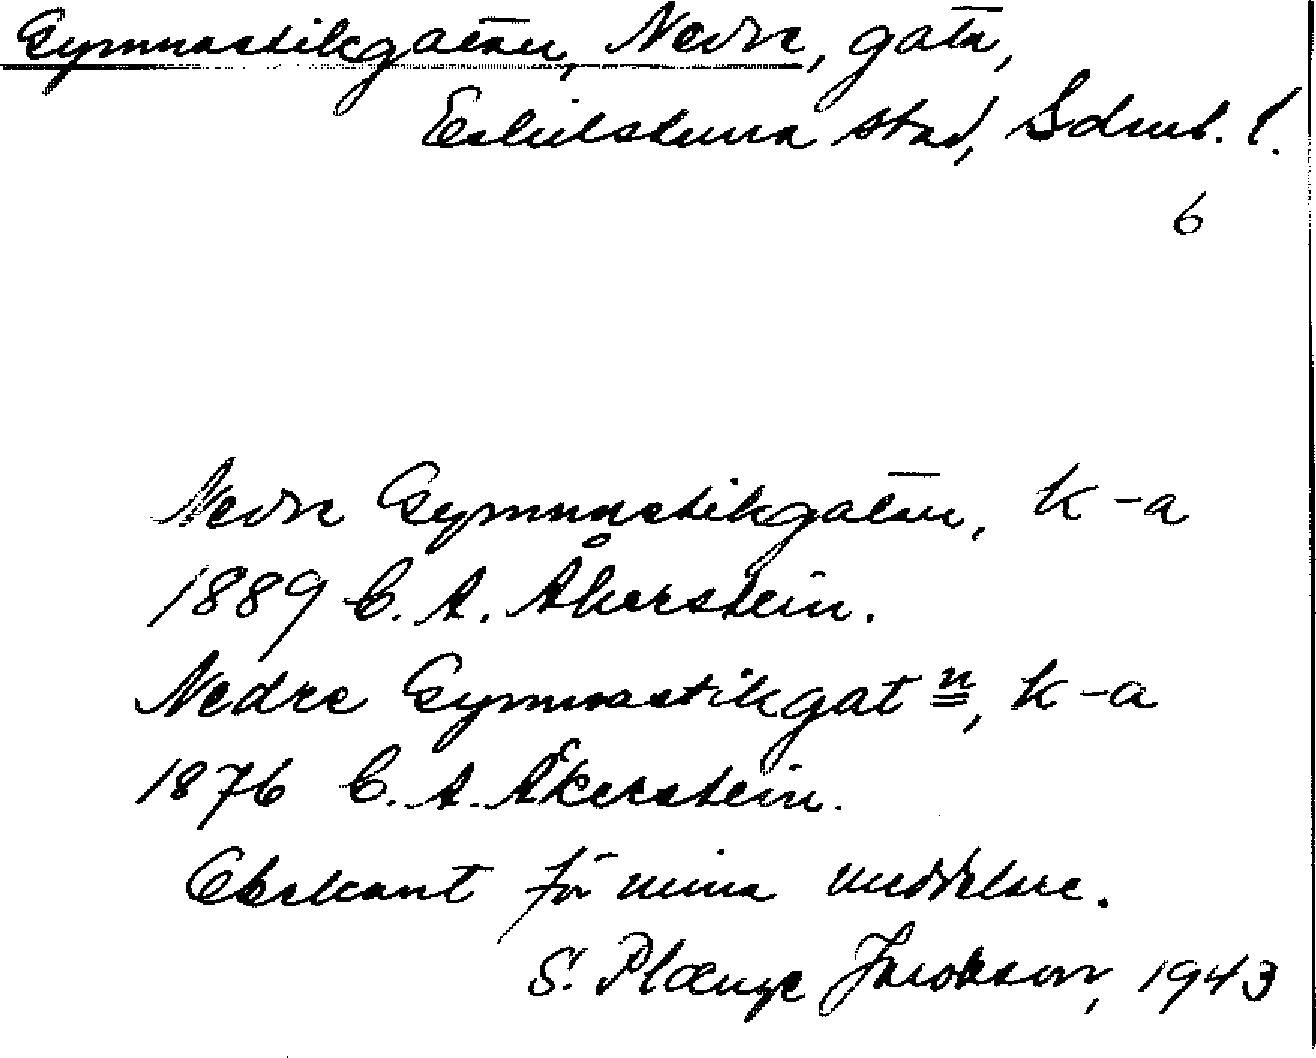 Gymnastikgatan, Nedre, gata,
Eskilstuna stad, Sdml. l.
6
Nedre Gymnastikgatan, k-a
1889 C. A. Åkerstein.
Nedre Gymnastikgat n, k-a
1876 C. A. Åkerstein.
Obekant för mina meddelare.
S. Plænge Jacobson, 1943